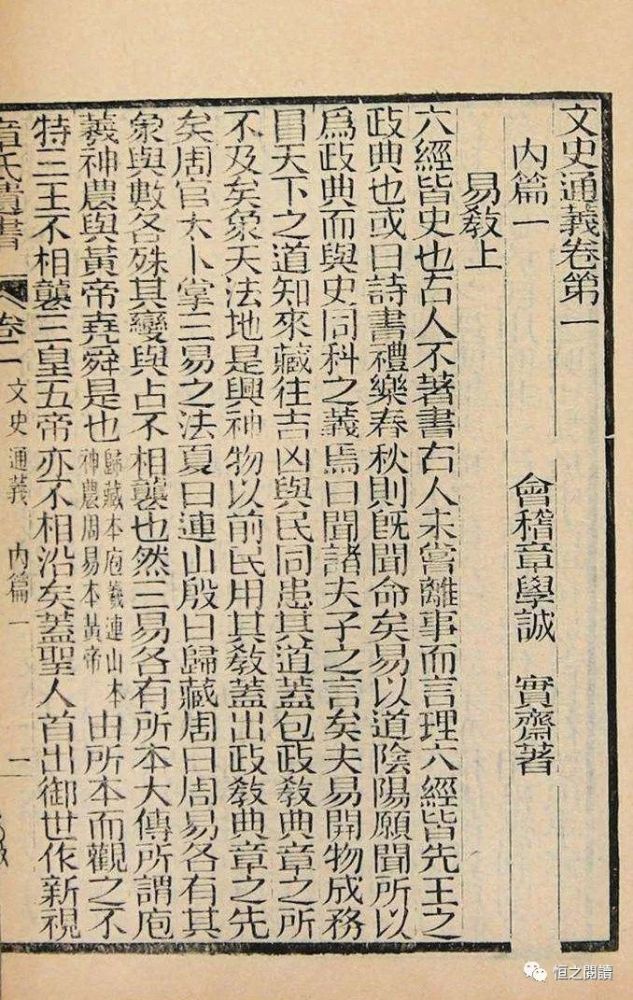 文史通義卷第一
內篇一　會稽章學誠　實齋著
易敎上
六經皆史也古人不著書古人未嘗離事而言理六經皆先王之
政典也或曰詩書禮樂春秋則旣聞命矣易以道陰陽願聞所以
爲政典而與史同科之義焉曰聞諸夫子之言矣夫易開物成務
冒天下之道知來藏往吉凶與民同患其道蓋包政敎典章之所
不及矣象天法地是興神物以前民用其敎蓋出政敎典章之先
矣周官太卜掌三易之法夏曰連山殷曰歸藏周曰周易各有其
象與數各殊其變與占不相襲也然三易各有所本大傳所謂庖
羲神農與黃帝堯舜是也歸藏本庖羲連山本神農周易本黃帝由所本而觀之不
特三王不相襲三皇五帝亦不相沿矣蓋聖人首出御世作新視
章氏遺書　卷一　文史通義　內篇一　一
恒之閱讀